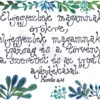 Eljegyezlek magamnak
örökre,
eljegyezlek magamnak
az igazság és a törvény,
a szeretet és az irgalom
ajándékával.
Hóseás